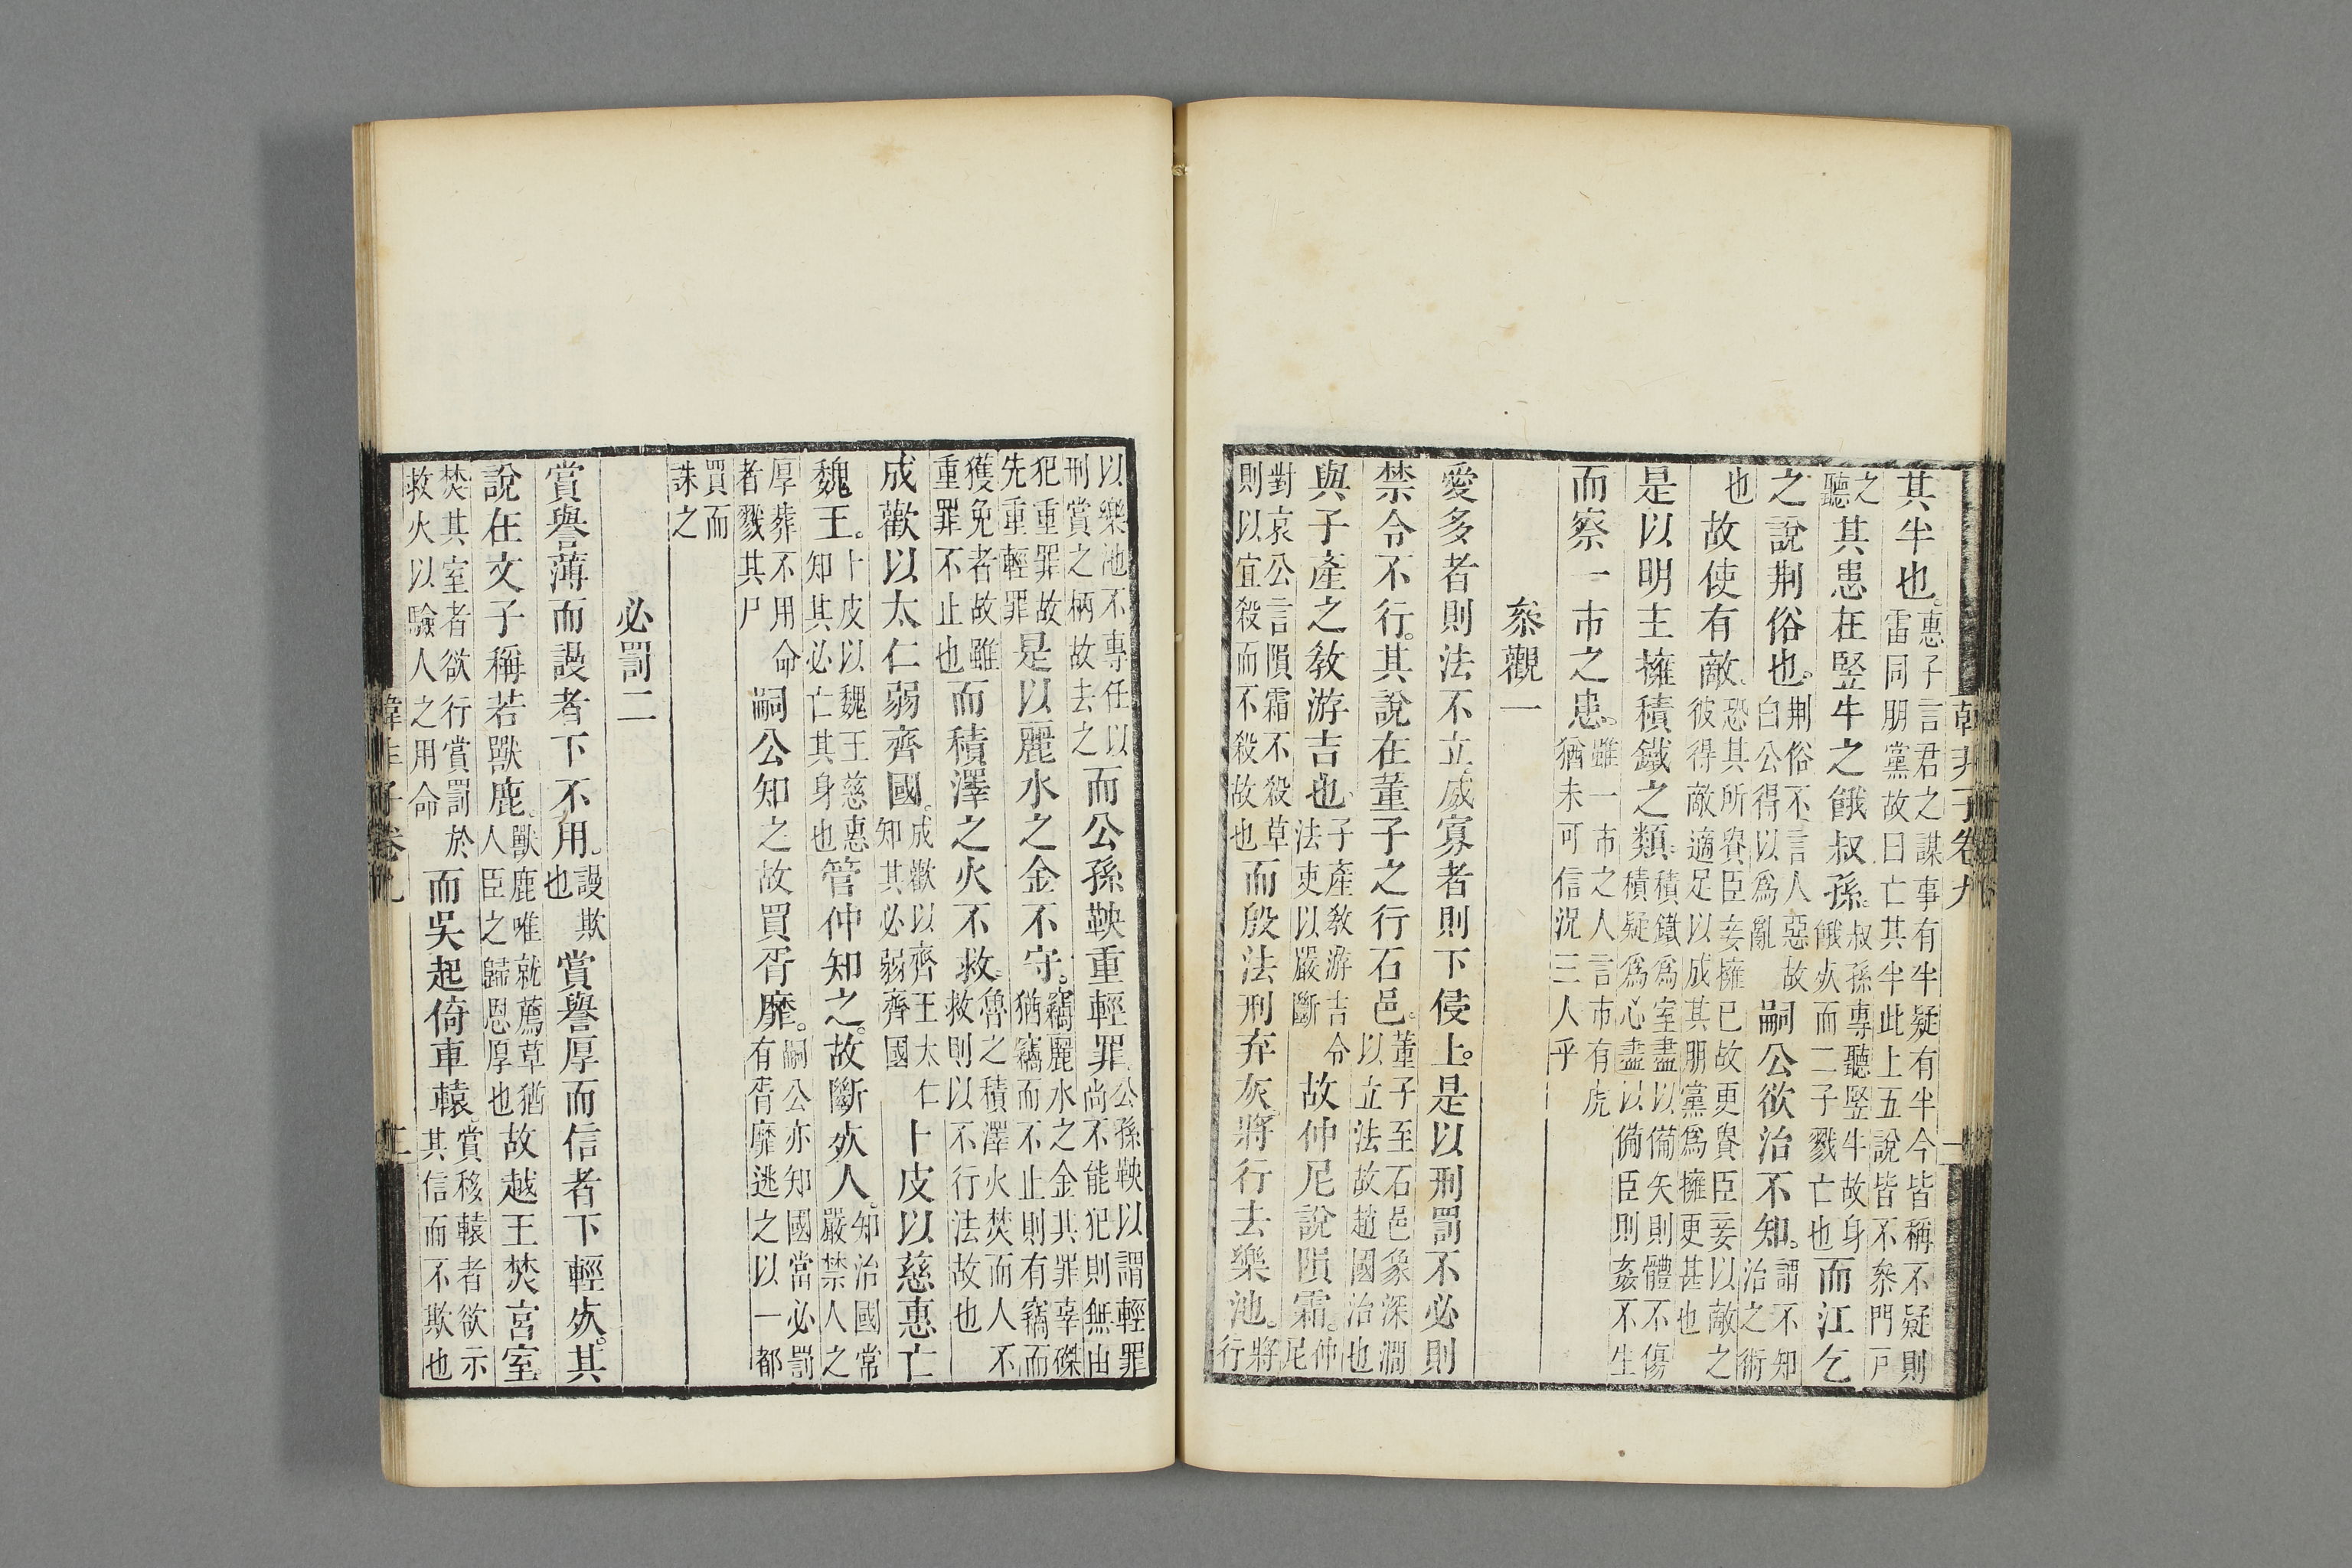 韓非子卷九
其半也。惠子言君之謀事有半疑有半今皆稱不疑則雷同朋黨故曰亡其半此上五說皆不叅門戸
之聽其患在竪牛之餓叔孫。叔孫專聽竪牛故身餓死而二子戮亡也而江乞
之說荆俗也。荆俗不言人惡故白公得以爲亂嗣公欲治不知。謂不知治之術
也故使有敵。恐其所貴臣妾擁已故更貴臣妾以敵之彼得敵適足以成其朋黨爲擁更甚也
是以明主擁積鐵之類積鐵爲室盡以備矢則體不傷積疑爲心盡以備臣則姦不生
而察一市之患。雖一市之人言市有虎猶未可信況三人乎
叅觀一
愛多者則法不立威寡者則下侵上。是以刑罰不必則
禁令不行。其說在董子之行石邑。董子至石邑象深澗以立法故趙國治也
與子產之敎游吉也子產敎游吉令法吏以嚴斷故仲尼說隕霜。仲尼
對哀公言隕霜不殺草則以宜殺而不殺故也而殷法刑弃灰。將行去樂池。將行
以樂池不專任以刑賞之柄故去之而公孫鞅重輕罪公孫鞅以謂輕罪尚不能犯則無由
犯重罪故先重輕罪是以麗水之金不守。竊麗水之金其罪辜磔猶竊而不止則有竊而
獲免者故雖重罪不止也而積澤之火不救。魯之積澤火焚而人不救則以不行法故也
成歡以太仁弱齊國。成歡以齊王太仁知其必弱齊國卜皮以慈惠亡
魏王。卜皮以魏王慈惠知其必亡其身也管仲知之。故斷死人。知治國常嚴禁人之
厚葬不用命者戮其尸嗣公知之故買胥靡。嗣公亦知國當必罰有胥靡逃之以一都
買而誅之
必罰二
賞譽薄而謾者下不用。謾欺也賞譽厚而信者下輕死。其
說在文子稱若獸鹿。獸鹿唯就薦草猶人臣之歸恩厚也故越王焚宮室
焚其室者欲行賞罰於救火以驗人之用命而吳起倚車轅。賞移轅者欲示其信而不欺也
韓非子卷九
二